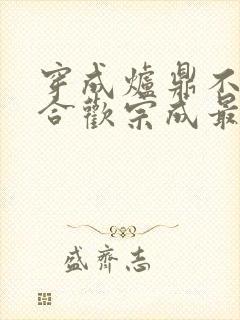 穿成爐鼎不
合歡宗成最
盛齊志